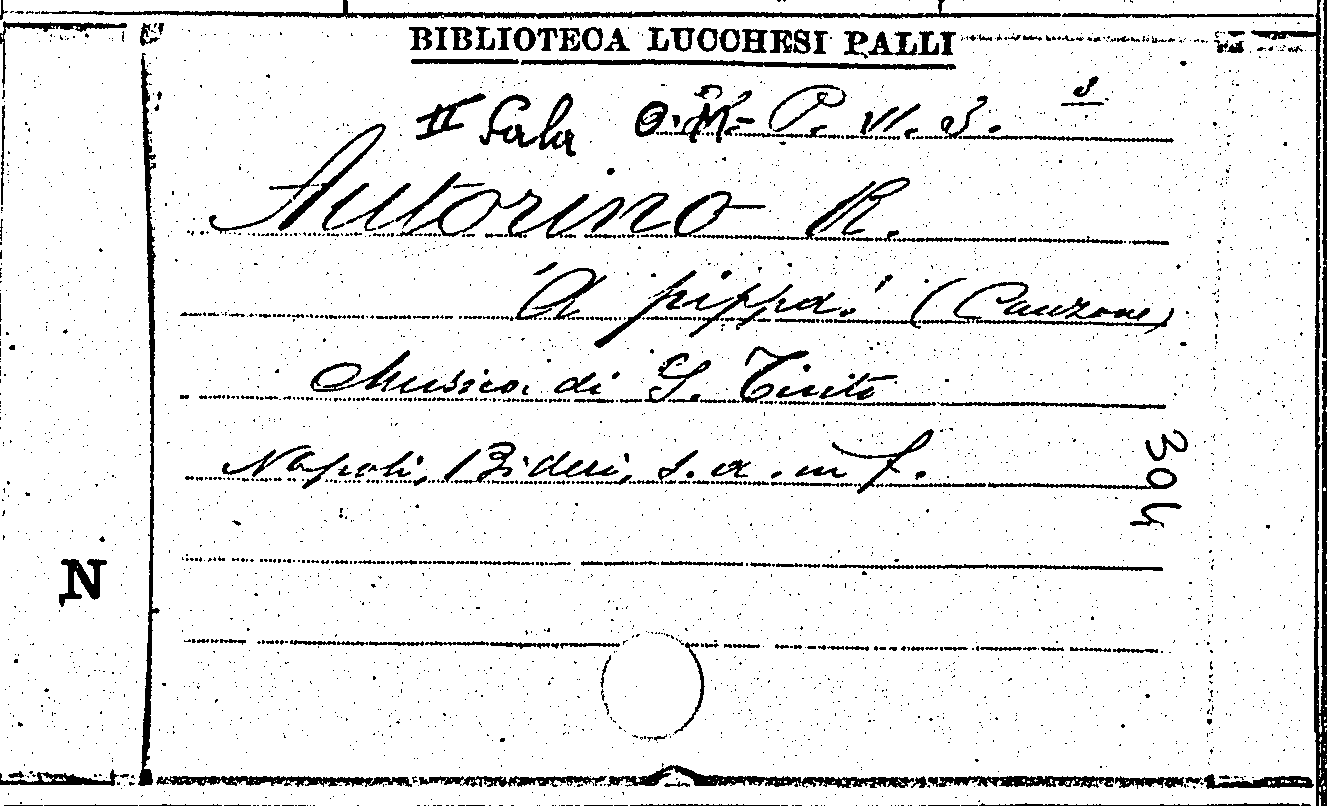 BIBLIOTECA LUCCHESI PALLI
II Sala P. VI. 3. 3
Autorino R.
'A pippa! (Canzone)
Musica di G.
Napoli, Bideri, s. a. in f.
394
N